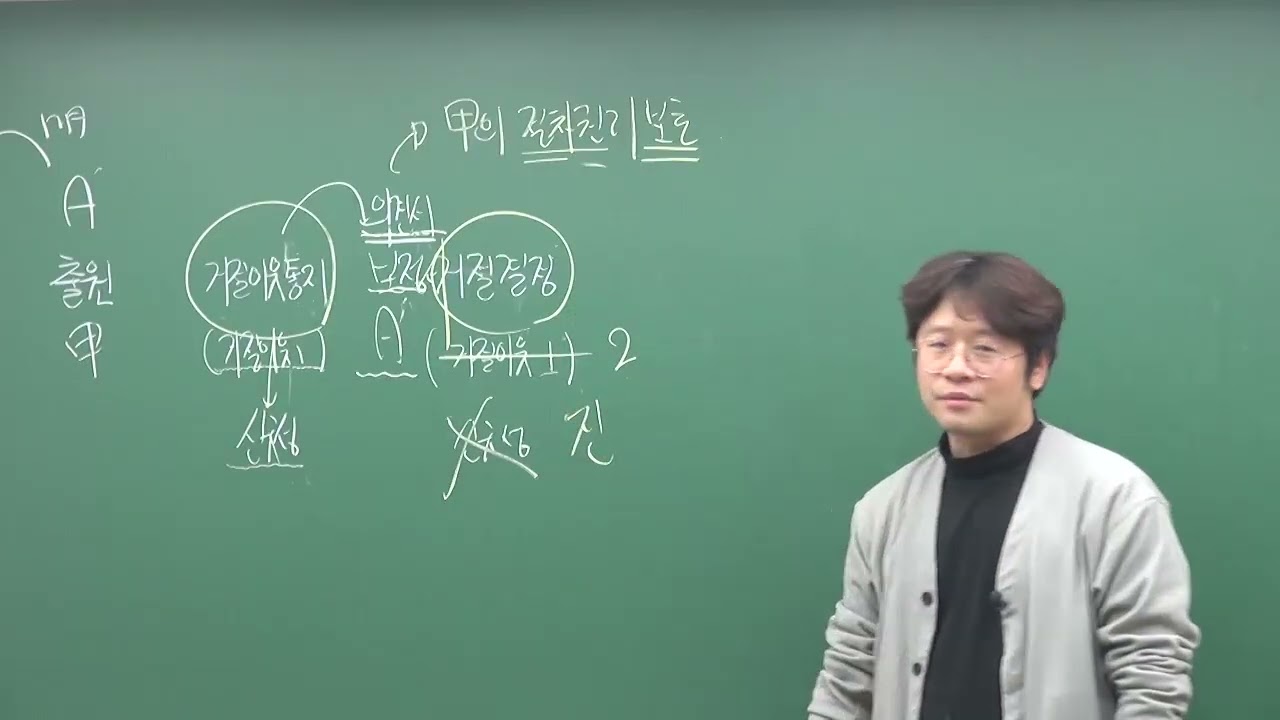 甲의 절차권리 보호
A'
의견서
출원 거절이유통지 보정 거절결정
甲 (거절이유1) A' (거절이유1) 2
신규성 진